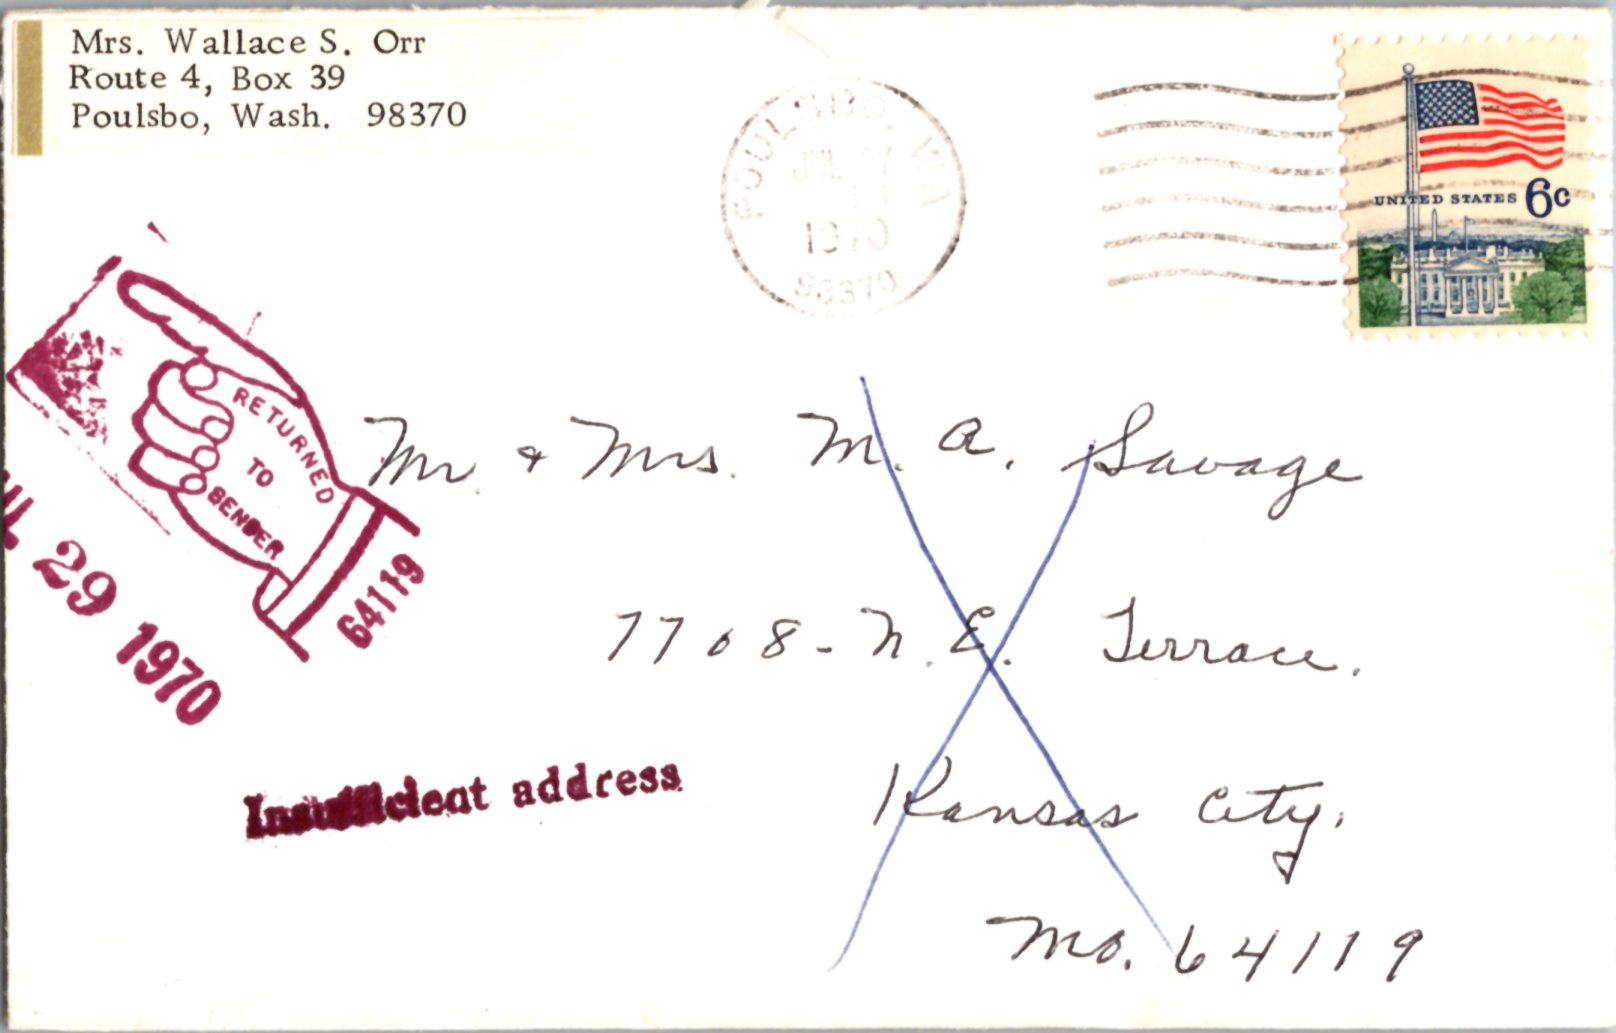 Mrs. Wallace S. Orr
Route 4, Box 39
Poulsbo, Wash. 98370
POULSBO, WA
JUL 27
1970
98370
UNITED STATES 6c
RETURNED
TO
SENDER
64119
29 1970
Mr. & Mrs. M. A. Savage
7708 - N. E. Terrace.
Kansas City,
Mo. 64119
Insufficient address